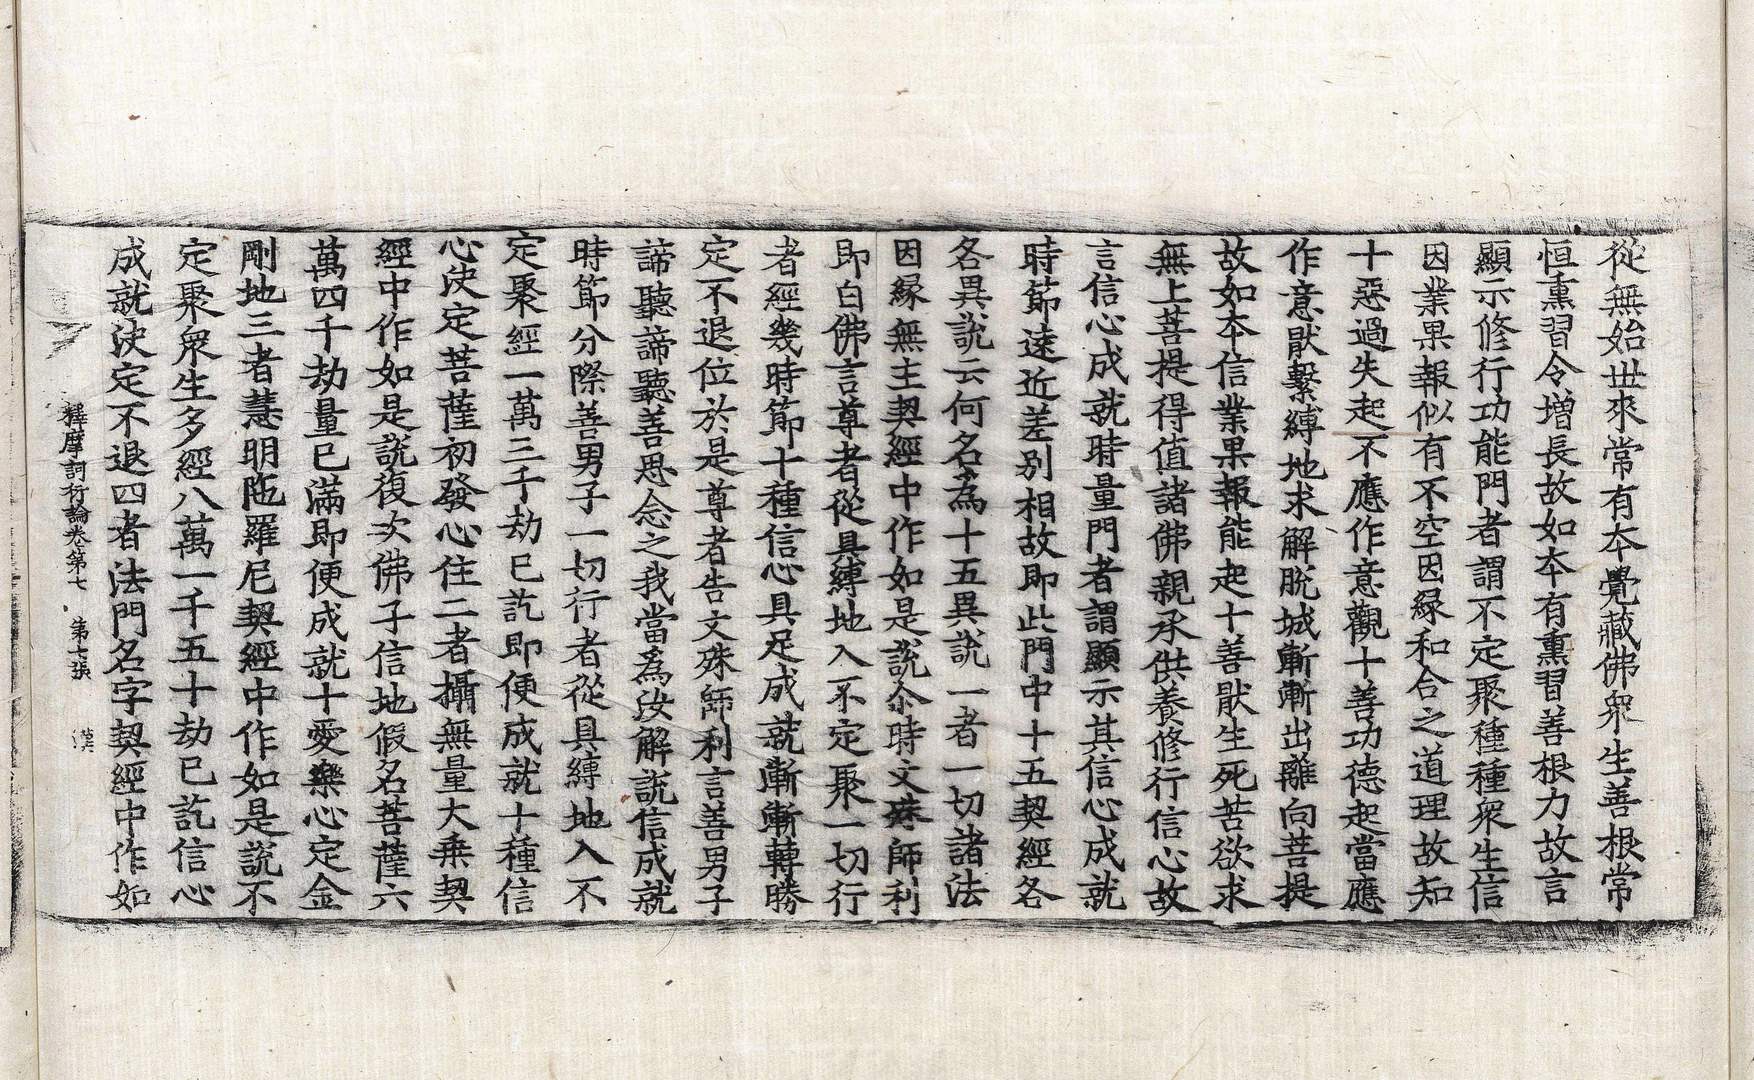 從無始世來常有本覺藏佛衆生善根常
恒熏習令增長故如本有熏習善根力故言
顯示修行功能門者謂不定聚種種衆生信
因業果報似有不空因緣和合之道理故知
十惡過失起不應作意觀十善功德起當應
作意猒繫縛地求解脫城漸漸出離向菩提
故如本信業果報能起十善猒生死苦欲求
無上菩提得值諸佛親承供養修行信心故
言信心成就時量門者謂顯示其信心成就
時節遠近差別相故即此門中十五契經各
各異說云何名為十五異說一者一切諸法
因緣無主契經中作如是說尒時文殊師利
即白佛言尊者從具縛地入不定聚一切行
者經幾時節十種信心具足成就漸漸轉勝
定不退位於是尊者告文殊師利言善男子
諦聽諦聽善思念之我當為汝解說信成就
時節分際善男子一切行者從具縛地入不
定聚經一萬三千劫已訖即便成就十種信
心決定菩薩初發心住二者攝無量大乘契
經中作如是說復次佛子信地假名菩薩六
萬四千劫量已滿即便成就十愛樂心定金
剛地三者慧明陁羅尼契經中作如是說不
定聚衆生多經八萬一千五十劫已訖信心
成就決定不退四者法門名字契經中作如
釋摩訶衍論卷第七 第七張 漢